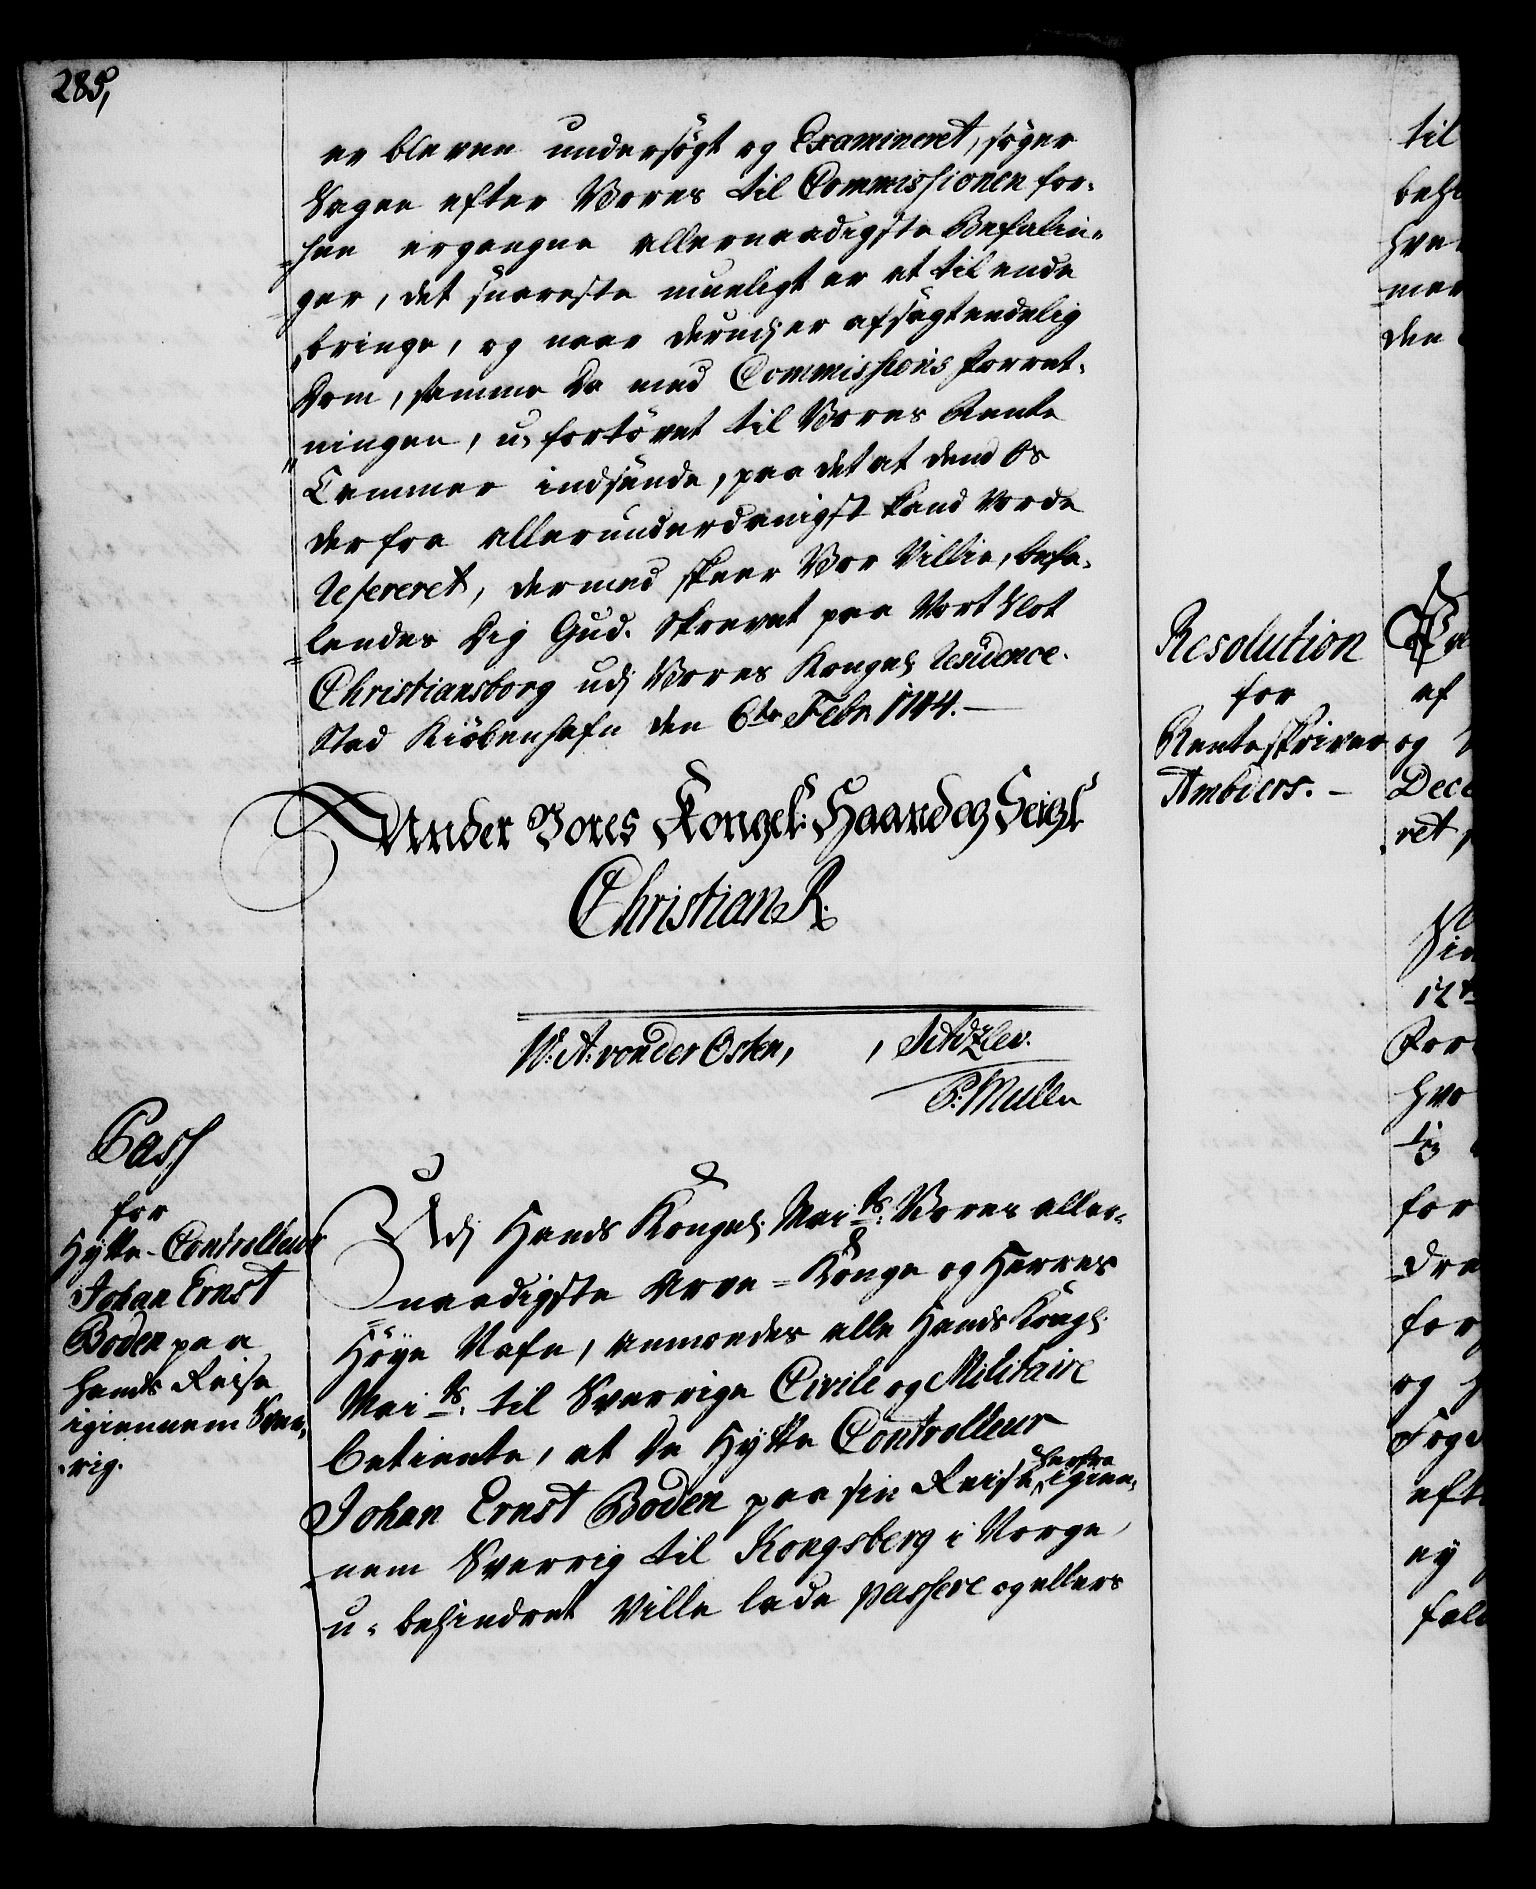 285,
er bleven undersøgt og Examineret, søger
Sagen efter Vores til Commissionen for-
hen ergangne allernaadigste Befalin-
ger, det snareste mueligt er at til ende
bringe, og naar derudj er afsagt endelig
Dom, samme da med Commissions forret-
ningen, u-fortøvet til Vores Rente
Cammer indsende, paa det at dend Os
derfra allerunderdanigst kand vorde
refereret, dermed skeer Vor Villie, befa-
lendes dig Gud. Skrevet paa Vort Slot
Christiansborg udj Vores Kongel. Residence-
Stad Kiöbenhafn den 6te Febr. 1744.
Under Vores Kongel: Haand og Seigl
Christian R.
W. A. von der Osten, , Schözler.
P. Müller
Pass
for
Hytte-Controlleur
Johan Ernst
Boden paa
hands Reise
igiennem Sver-
rig.
Udj Hands Kongel. Mai.ts Vores aller-
naadigste Arve-Konge og Herres
Høye Nafn, anmodes alle Hands Kongl.
Mai.ts til Sverrige Civile og Militaire
betiente, at de Hytte Controlleur
Johan Ernst Boden paa sin Reise herfra igien-
nem Sverrig til Kongsberg i Norge
u-behindret ville lade passere og ellers
Resolution
for
Renteskriver
Ambders.
til
beh
hve
mer
den
af
og
Dece
ret
12te
For
hvo
for
dra
for
og
Foge
eft
ey
fal